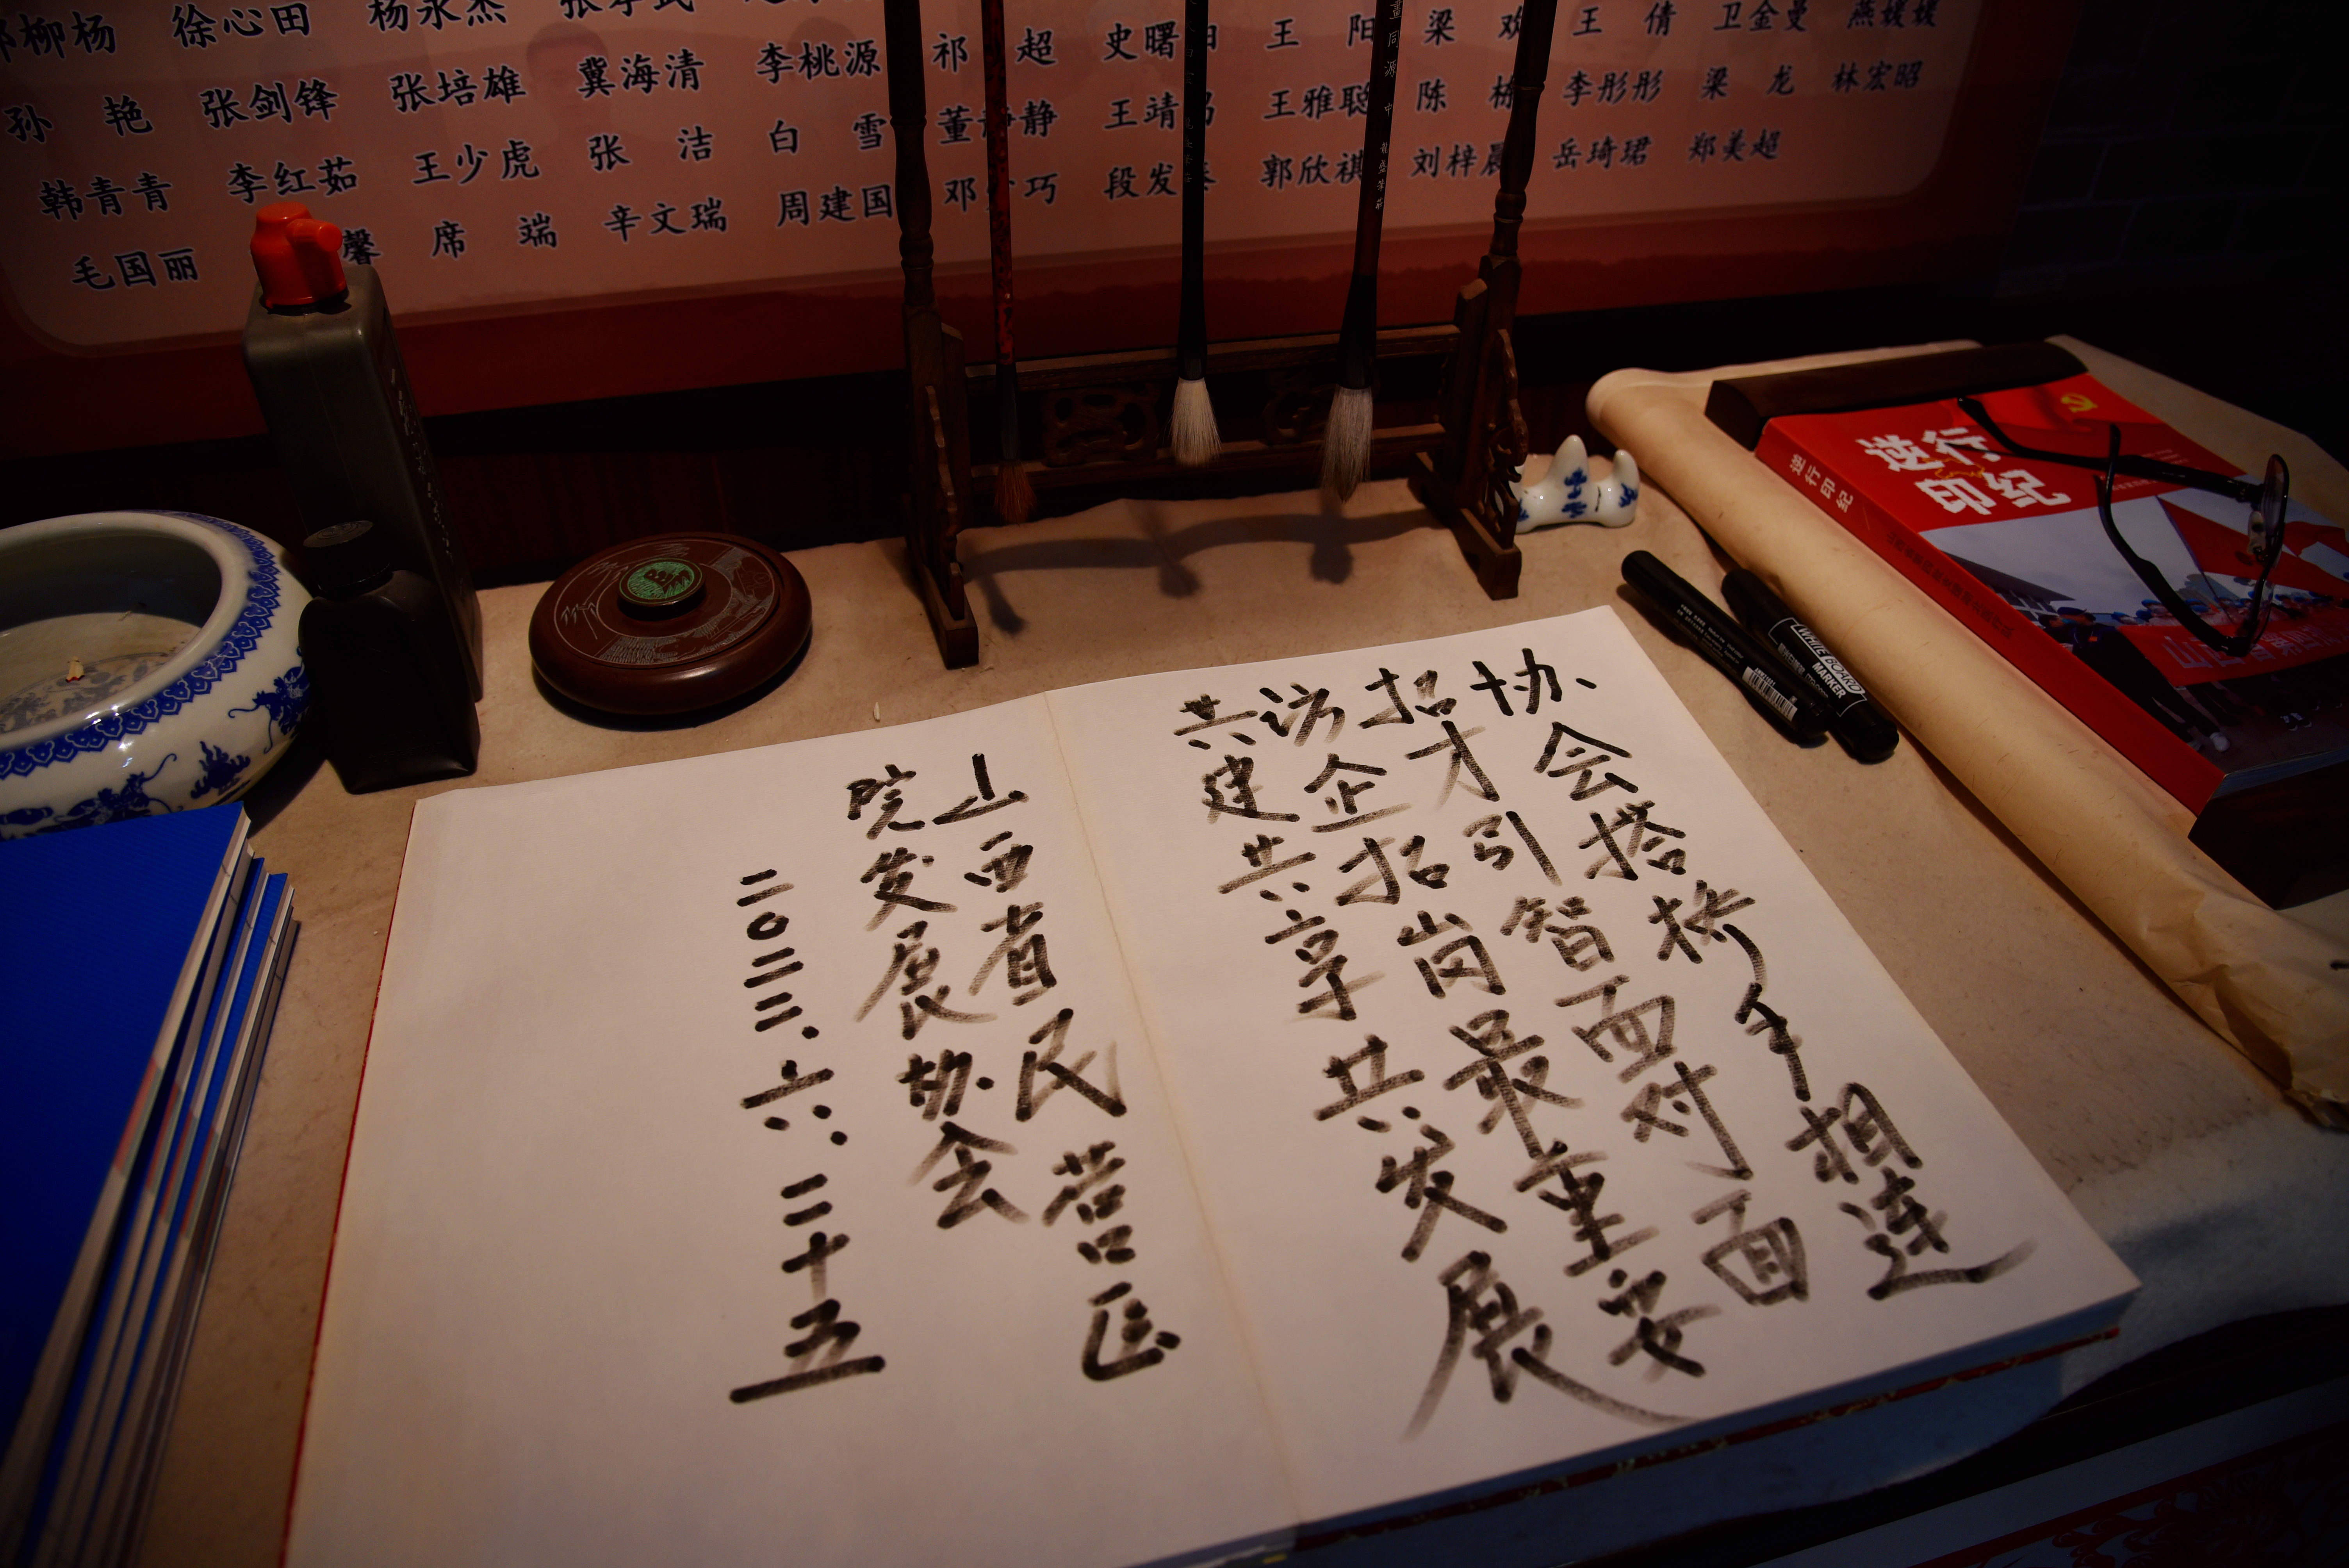 柳杨 徐心田 杨永杰
孙 艳 张剑锋 张培雄 冀海清 李桃源 祁 超 史曙 王 阳 梁 欢 王 倩 卫金曼 燕媛媛
韩青青 李红茹 王少虎 张 洁 白 雪 董静静 王靖 王雅聪 陈 栋 李彤彤 梁 龙 林宏昭
毛国丽 馨 席 端 辛文瑞 周建国 邓 巧 段发 郭欣祺 刘梓晨 岳琦珺 郑美超
逆行
印纪
逆行印纪
WHITE BOARD
MARKER
协会搭桥手相连
招才引智面对面
访企招岗最重要
共建共享共发展
山西省民营医
院发展协会
二0二三.六.二十五